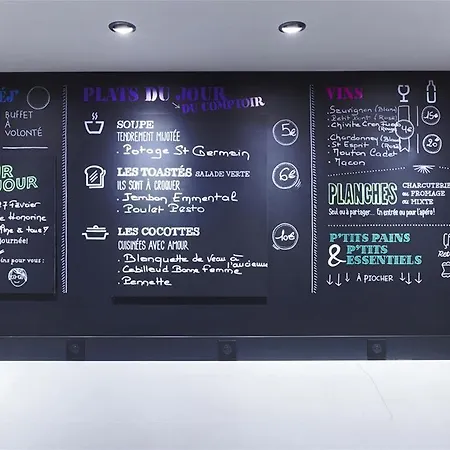 BUFFET
À
VOLONTÉ
JOUR
PLATS DU JOUR
DU COMPTOIR
SOUPE
TENDREMENT MIJOTÉE
. Potage St Germain
5€
LES TOASTÉS SALADE VERTE
ILS SONT À CROQUER
. Jambon Emmental
. Poulet Pesto
6€
LES COCOTTES
CUISINÉES AVEC AMOUR
. Blanquette de Veau à l'ancienne
. Cabillaud Bonne Femme
. Pennette
10€
VINS
. Sauvignon (Blanc)
4€
15€
. Chardonnay (Blanc)
. St Esprit (Rouge)
. Mouton Cadet
. Macon
20
PLANCHES
CHARCUTERIE
OU FROMAGE
OU MIXTE
Seul ou à partager... En entrée ou pour l'apéro!
P'TITS PAINS
& P'TITS
ESSENTIELS
À PIOCHER